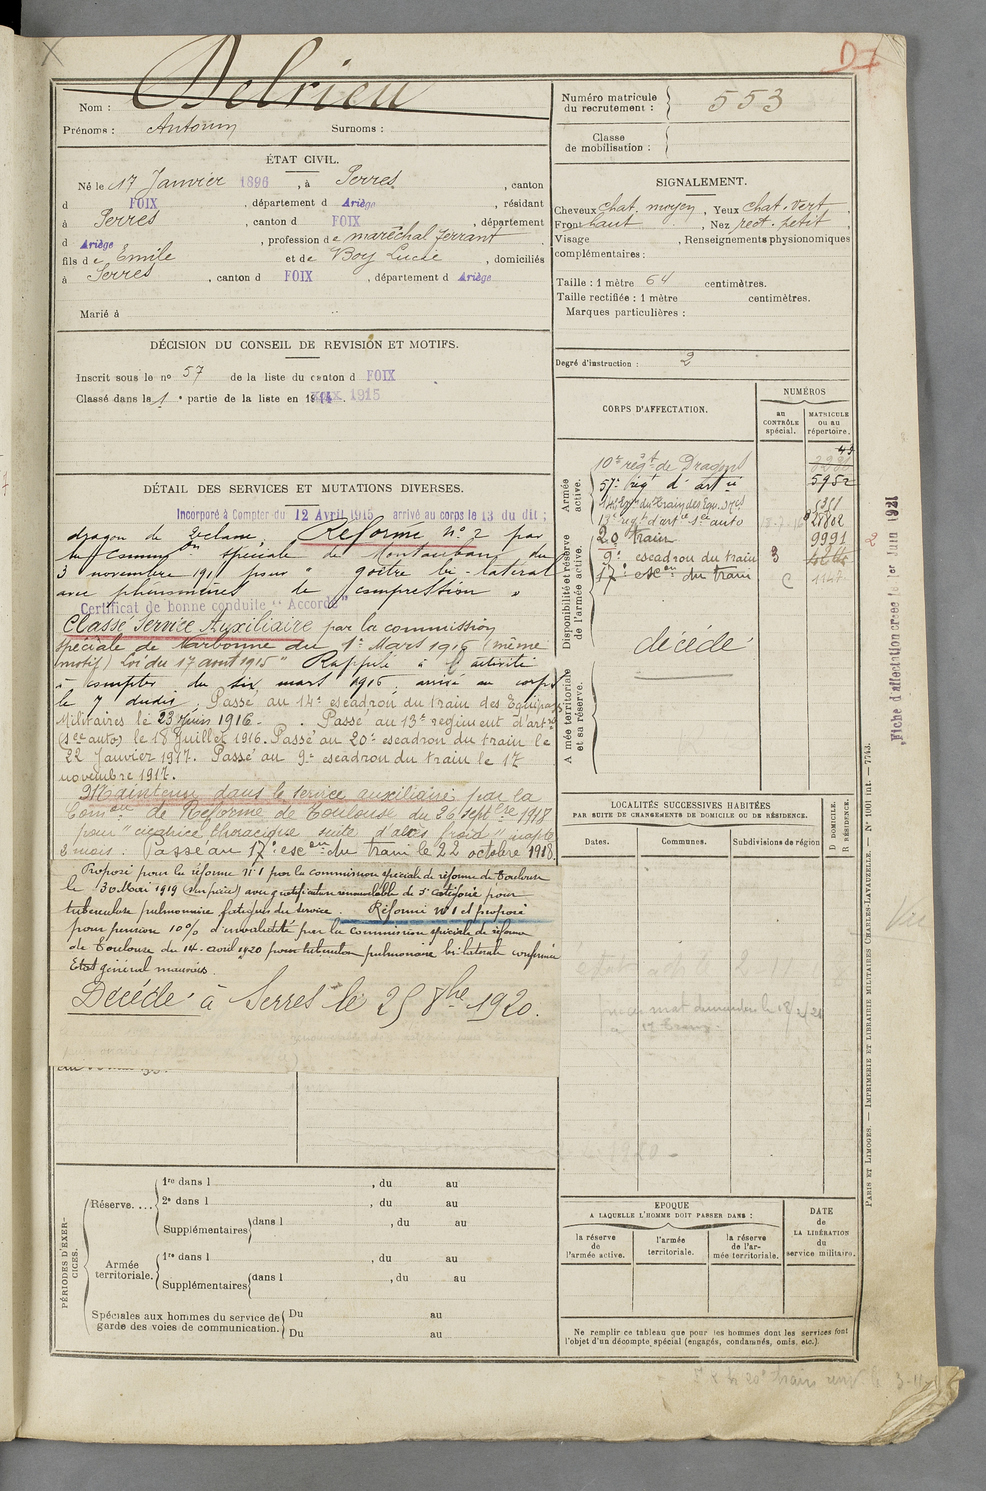 D7
Nom : Delrieu
Prénoms : Antonin Surnoms :
Numéro matricule du recrutement : 553
Classe de mobilisation :
ÉTAT CIVIL.
Né le 17 Janvier 1896, à Serres, canton
d FOIX, département d Ariège, résidant
à Serres, canton d FOIX, département
d Ariège, profession de maréchal ferrant
fils de Emile et de Boy Lucie, domiciliés
à Serres, canton d FOIX, département d Ariège
Marié à
SIGNALEMENT.
Cheveux chat. moyen, Yeux chat. vert,
Front haut, Nez rect. petit,
Visage , Renseignements physionomiques
complémentaires :
Taille : 1 mètre 64 centimètres.
Taille rectifiée : 1 mètre centimètres.
Marques particulières :
Degré d'instruction : 2
DÉCISION DU CONSEIL DE REVISION ET MOTIFS.
Inscrit sous le nº 57 de la liste du canton d FOIX
Classé dans le 1 e partie de la liste en 1915
DÉTAIL DES SERVICES ET MUTATIONS DIVERSES.
Incorporé à Compter du 12 Avril 1915 arrivé au corps le 13 du dit ;
dragon de 2e classe, Réformé Nº 2 par
la Common spéciale de Montauban du
3 novembre 191 pour " goître bi-latéral
avec phénomènes de compression "
Certificat de bonne conduite "Accordé"
Classé Service Auxiliaire par la commission
spéciale de Narbonne du 1er Mars 1916 (même
motif) Loi du 17 août 1915" Rappelé à l'activité
à compter du six mars 1916, arrivé au corps
le 7 dudit. Passé au 14e escadron du train des Equipages
Militaires le 23 Juin 1916. Passé au 13e régiment d'artie
(son auto) le 18 Juillet 1916. Passé au 20e escadron du train le
22 Janvier 1917. Passé au 9e escadron du train le 17
novembre 1917.
Maintenu dans le service auxiliaire par la
Comon de Réforme de Toulouse du 26 septbre 1918
pour "cicatrice thoracique suite d'abcès froid" inapte
2 mois. Passé au 17e escon du train le 22 octobre 1918.
Proposé pour la réforme nº 1 par la commission spéciale de réforme de Toulouse
le 30 Mai 1919 avec gratification renouvelable de 5e catégorie pour
tuberculose pulmonaire fatigues du service Réformé Nº 1 et proposé
pour pension 10% d'invalidité par la Commission spéciale de réforme
de Toulouse du 14 avril 1920 pour tuberculose pulmonaire bi-latérale confirmée
Etat général mauvais.
Décédé à Serres le 25 8bre 1920.
CORPS D'AFFECTATION.
NUMÉROS
au CONTRÔLE spécial.
MATRICULE ou au répertoire.
Armée active.
10e régt de Dragons
57e régt d'artie 5952
14e Esqon du Train des Equ. Mres
13e régt d'artie son auto 28802
Disponibilité et réserve de l'armée active.
20 train 9991
9e escadron du train 3
17e escon du train C
décédé
Armée territoriale et sa réserve.
LOCALITÉS SUCCESSIVES HABITÉES
PAR SUITE DE CHANGEMENTS DE DOMICILE OU DE RÉSIDENCE.
Dates. Communes. Subdivisions de région
D DOMICILE.
R RÉSIDENCE.
PÉRIODES D'EXERCICES.
Réserve.... 1re dans l , du au
2e dans l , du au
Supplémentaires dans l , du au
Armée territoriale. 1re dans l , du au
Supplémentaires dans l , du au
Spéciales aux hommes du service de garde des voies de communication. Du au
Du au
EPOQUE
A LAQUELLE L'HOMME DOIT PASSER DANS :
la réserve de l'armée active.
l'armée territoriale.
la réserve de l'armée territoriale.
DATE de LA LIBÉRATION du service militaire.
Ne remplir ce tableau que pour les hommes dont les services font
l'objet d'un décompte spécial (engagés, condamnés, omis, etc.).
Fiche d'affectation créée le 1er Juin 1921
PARIS ET LIMOGES. — IMPRIMERIE ET LIBRAIRIE MILITAIRES CHARLES-LAVAUZELLE. — Nº 1001 int. — 7743.